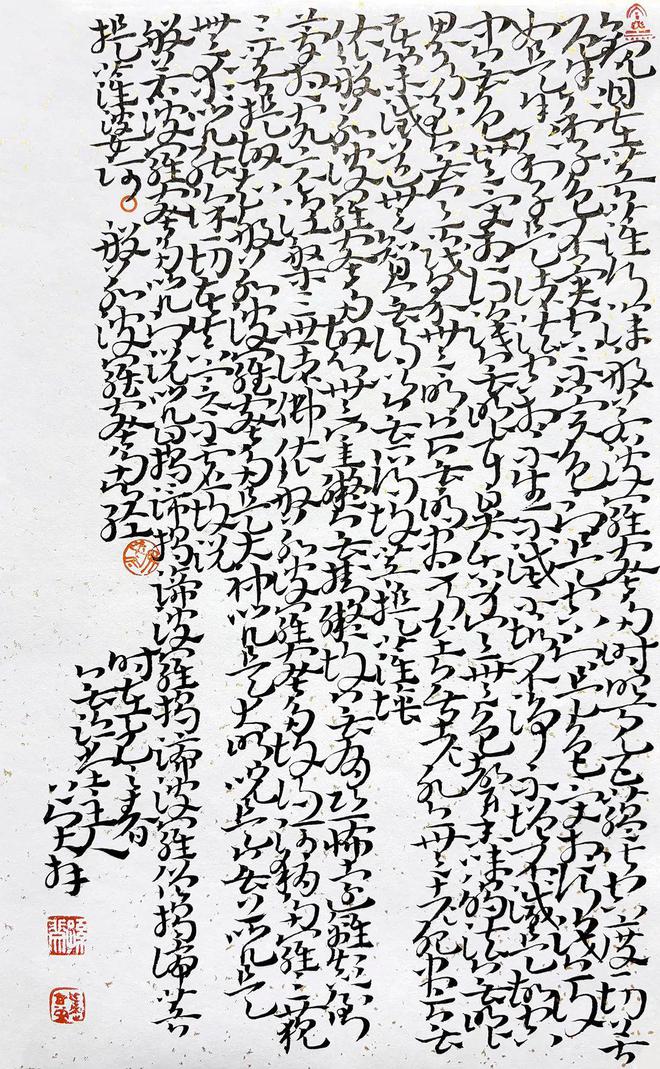 觀自在菩薩行深般若波羅蜜多時照見五蘊皆空度一切苦
厄舍利子色不異空空不異色色即是空空即是色受想行識亦復
如是舍利子是諸法空相不生不滅不垢不淨不增不減是故空
中無色無受想行識無眼耳鼻舌身意無色聲香味觸法無眼
界乃至無意識界無無明亦無無明盡乃至無老死亦無老死盡無
苦集滅道無智亦無得以無所得故菩提薩埵
依般若波羅蜜多故心無罣礙無罣礙故無有恐怖遠離顛倒
夢想究竟涅槃三世諸佛依般若波羅蜜多故得阿耨多羅三藐
三菩提故知般若波羅蜜多是大神咒是大明咒是無上咒是
無等等咒能除一切苦真實不虛故說
般若波羅蜜多咒即說咒曰揭諦揭諦波羅揭諦波羅僧揭諦菩
提薩婆訶 般若波羅蜜多心經
时在之春